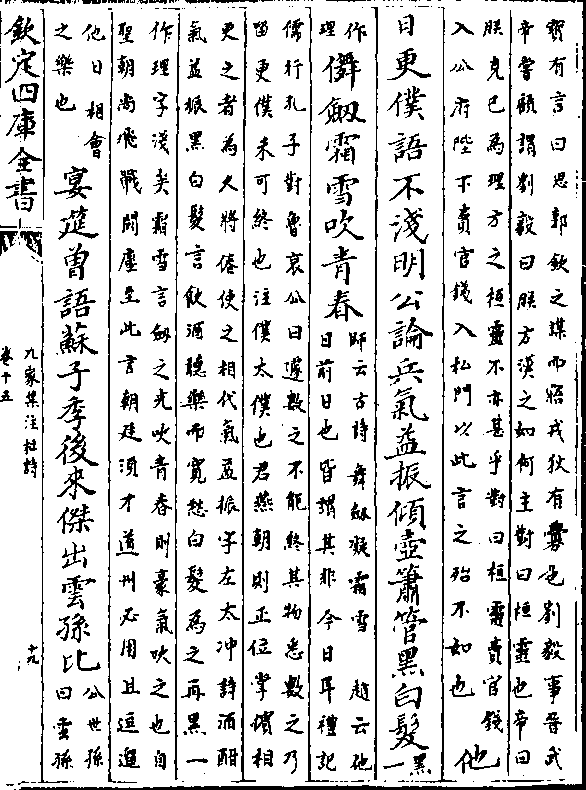 實有言曰思郭欽之謀而寤戎狄有釁也劉毅事晉武
帝嘗顧謂劉毅曰朕方漢之如何主對曰桓靈也帝曰
朕克已為理方之桓靈不亦甚乎對曰桓靈賣官錢
入公府陛下賣官錢入私門以此言之殆不如也
他
日更僕語不淺明公論兵氣益振傾壺簫管黑白髮
黑一
作理
儛劔霜雪吹青春
師云古詩舞劔凝霜雪 趙云他
日前日也皆謂其非今日耳禮記
儒行孔子對魯哀公曰遽數之不能終其物悉數之乃
留更僕未可終也注僕太僕也君燕朝則正位掌儐相
更之者為久將倦使之相代氣益振字左太冲詩酒酣
氣益振黑白髮言飲酒聽樂而寛愁白髮為之再黑一
作理字淺矣霜雪言劔之光吹青春則豪氣吹之也自
聖朝尚飛戰鬭塵至此言朝廷須才道州必用且逗遛
他日相會
之樂也
宴筵曾語蘇子季後來傑出雲孫比
公世孫
曰雲孫
欽定四庫全書
九家集注杜詩
卷十五
十九